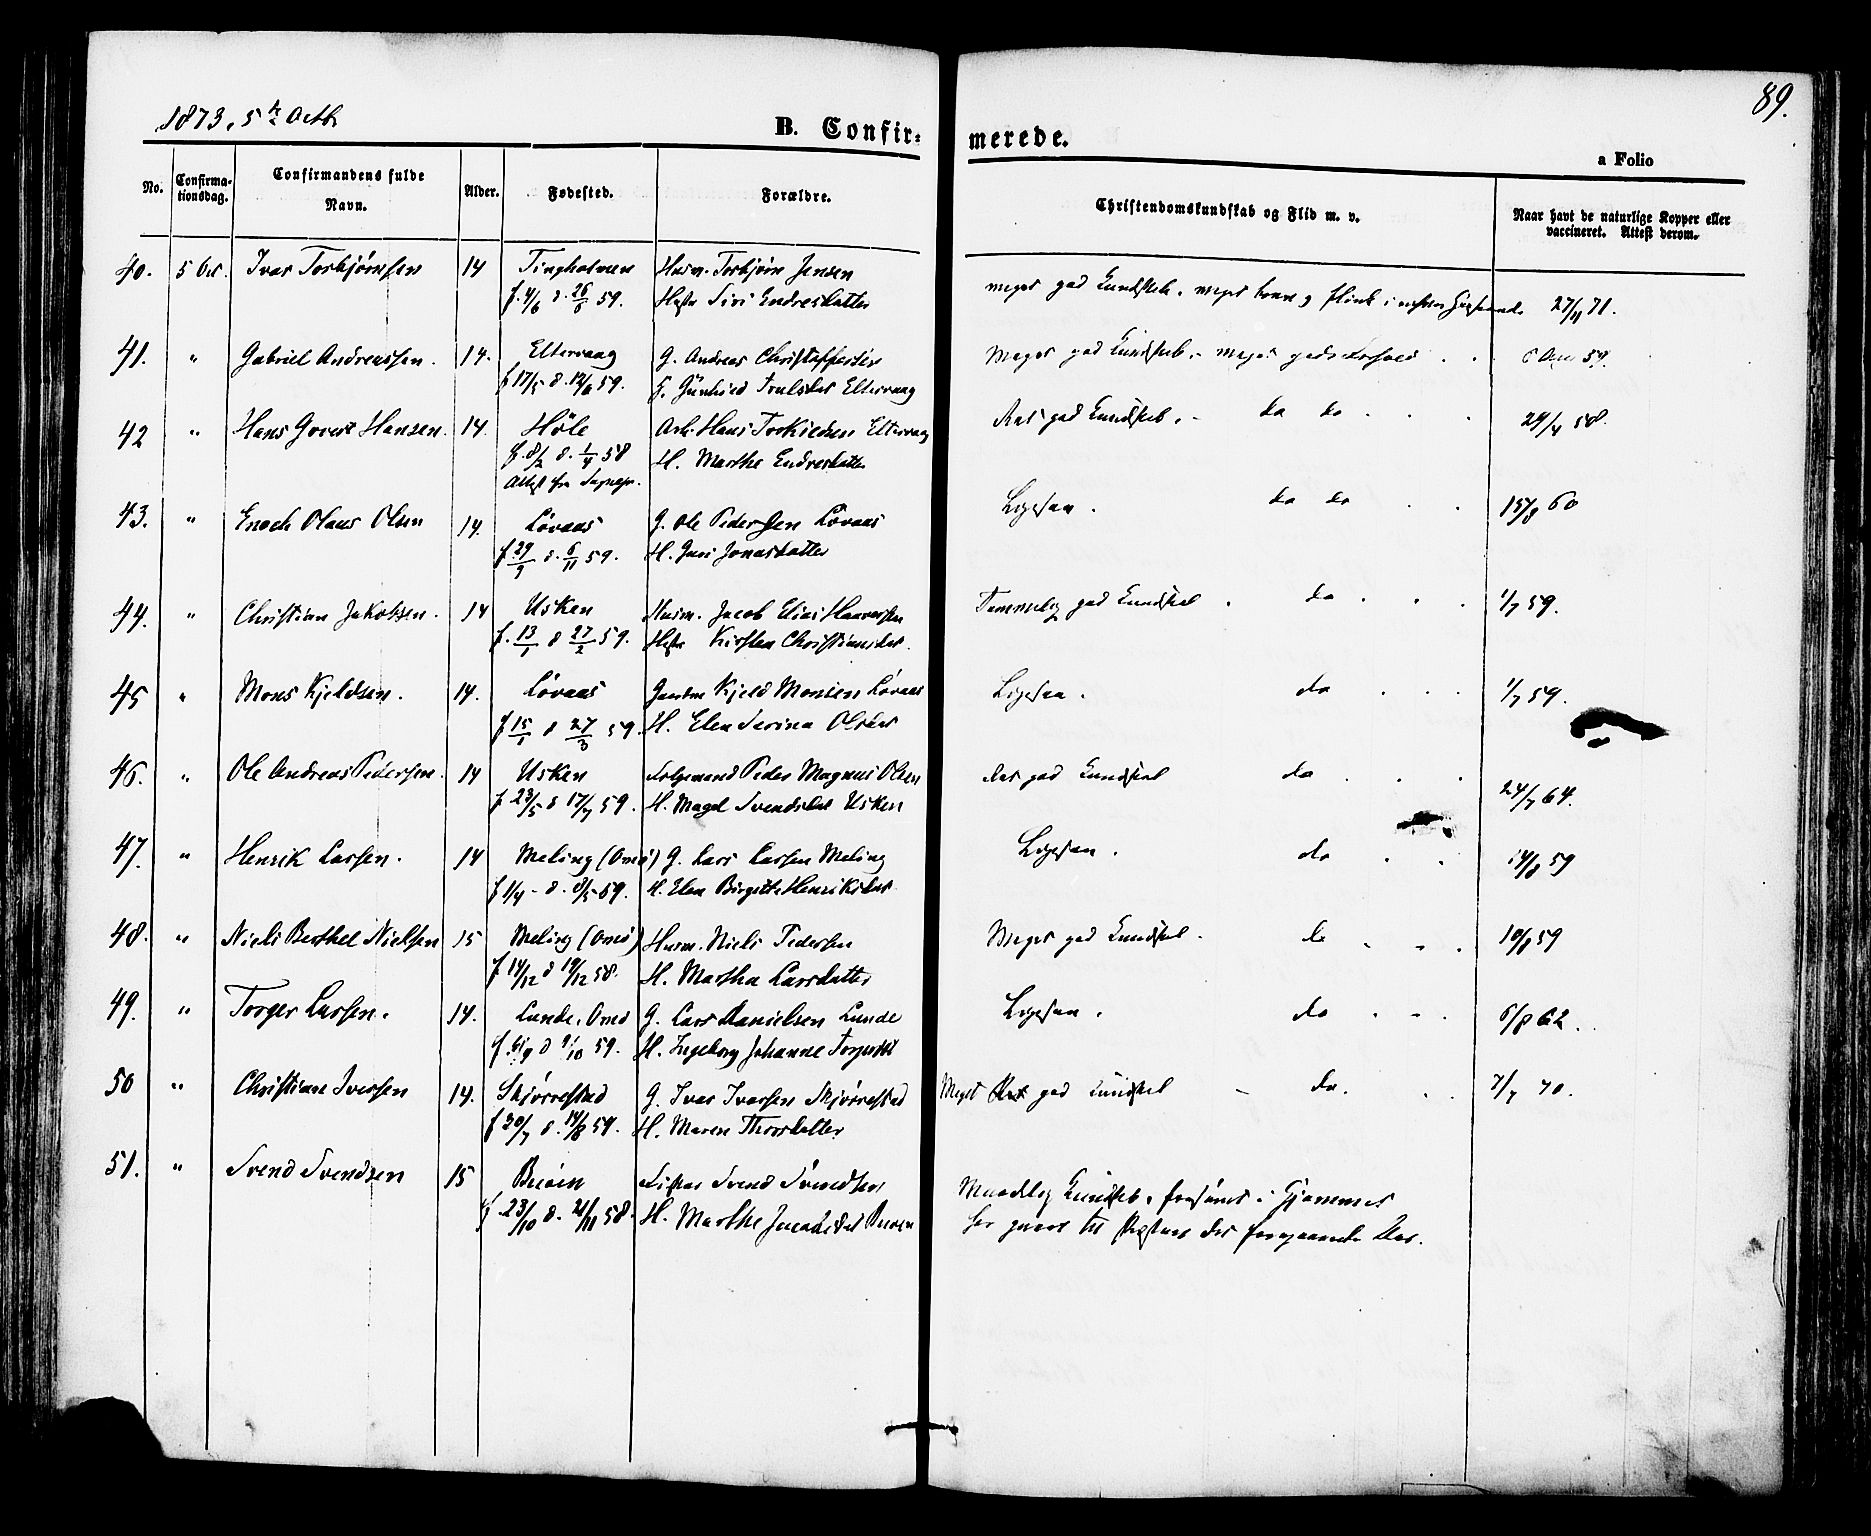 89.
1873, 5te Octb.
B. Confirmerede.
a Folio
No.
Confirmationsdag.
Confirmandens fulde Navn.
Alder.
Fødested.
Forældre.
Christendomskundskab og Flid m. v.
Naar havt de naturlige Kopper eller vaccineret. Attest derom.
40. 5 Oct. Ivar Torbjørnsen 14 Tingholmen Husm. Torbjørn Jensen meget god Kundskab. meget 27/11 71.
f. 4/6 d. 26/6 59. Hstr Siri Endresdatter
41. " Gabriel Andreassen. 14. Eltervaag G. Andreas Christoffersen Meget god Kundskab. - meget god 59.
f 17/5 d. 12/6 59. H. Eltervaag
42 " Hans Govert Hansen. 14. Høle Arb. Hans Torkildsen Eltervaag Ret god Kundskab. - do do 24/4 58.
f. 8/2 d. 1/4 58 H. Marthe Endresdatter
Attest fra
43. " Enoch Olaus Olsen 14. Lovaas G. Ole Pedersen Lovaas Ligesaa. do do 15/8 60
f. 29/9 d. 6/11 59. H. Guri Jonasdatter
44. " Christian Jakobsen. 14 Usken Husm. Jacob Elias Haaversen Temmelig god Kundskab. do 1/7 59.
f. 13/1 d 27/2 59. Hstr Kirsten Christiansdat.
45 " Mons Kjeldsen. 14. Lovaas Gaardm Kjeld Monsen Lovaas Ligesaa. do 1/7 59.
f 15/1 d 27/3 59. H. Elen Serina Olsdat
46. " Ole Andreas Pedersen. 14 Usken Peder Magnus Olsen Ret god Kundskab do 24/7 64.
f. 23/5 d 17/7 59. H. Magel Svendsdat Usken
47. " Henrik Larsen. 14 Meling (Omø) G. Lars Larsen Meling Ligesaa. do 14/8 59
f 1/4 - d. 8/5 59. H. Elen Birgitte Henriksdat.
48. " Niels Berthel Nielsen 15 Meling (Omø) Husm. Niels Pedersen Meget god Kundskab. do 10/8 59
f 14/12 d 19/12 58. H. Martha Larsdatter
49. " Torger Larsen. 14. Lunde. Omø G. Lars Danielsen Lunde Ligesaa. do 6/8 62.
d 9/10 59. H. Ingeborg Johanne Torgersd
50 " Christian Iversen 14. Skjørrestad G. Ivar Iversen Skjørrestad Meget god Kundskab - do. 7/7 70.
f 20/7 d. 14/8 59. H. Maren Thorsdatter
51. " Svend Svendsen 15 Buøen Fisker Svend Svendsen Maadelig Kundskab. forsømt i Hjemmet
f. 23/10 d. 21/11 58. H. Marthe Jacobsdat Buøen før til Præsten det foregaaende Aar.